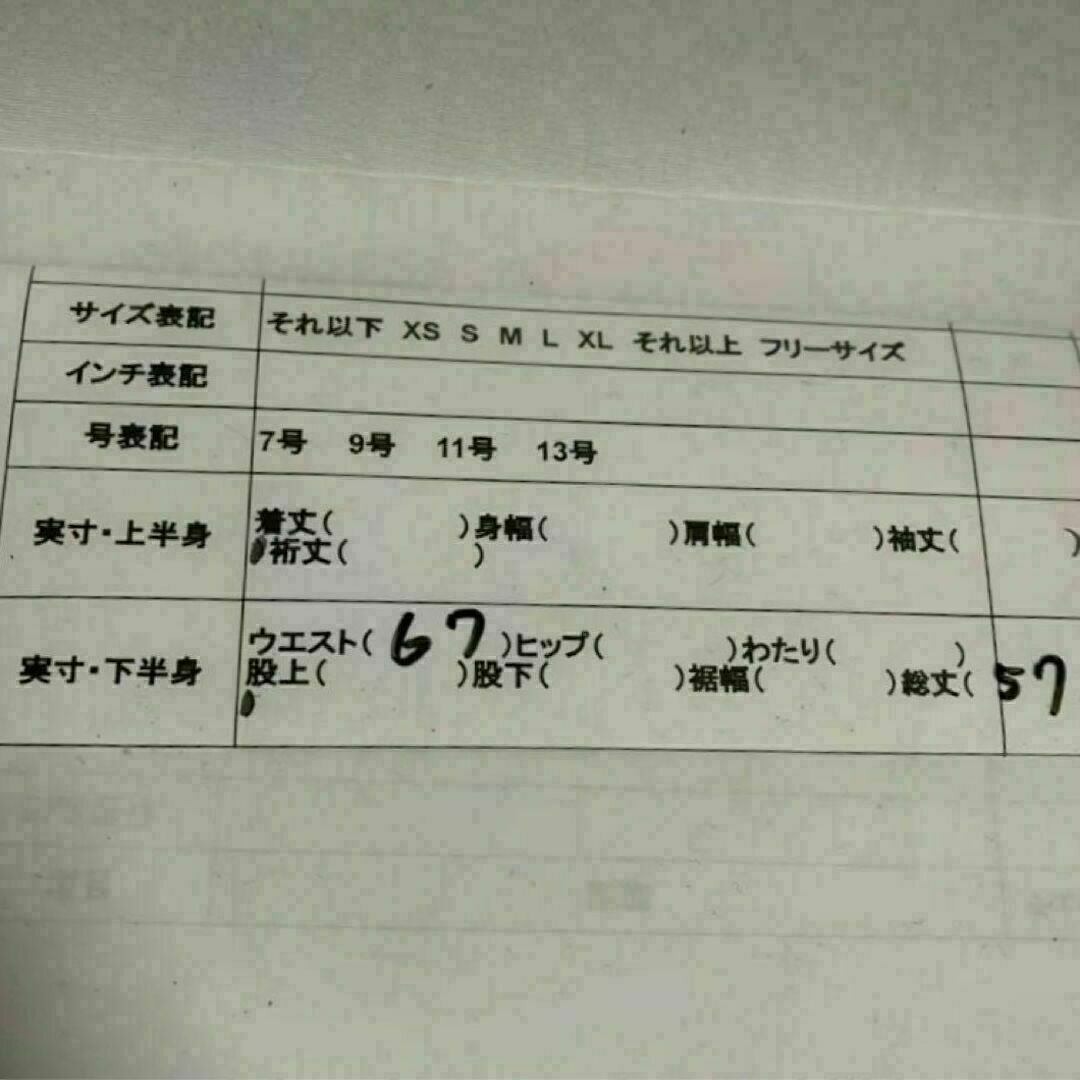 サイズ表記 それ以下 XS S M L XL それ以上 フリーサイズ
インチ表記
号表記 7号 9号 11号 13号
実寸・上半身 着丈( )身幅( )肩幅( )袖丈( )
裄丈( )
実寸・下半身 ウエスト( 67 )ヒップ( )わたり( )
股上( )股下( )裾幅( )総丈( 57